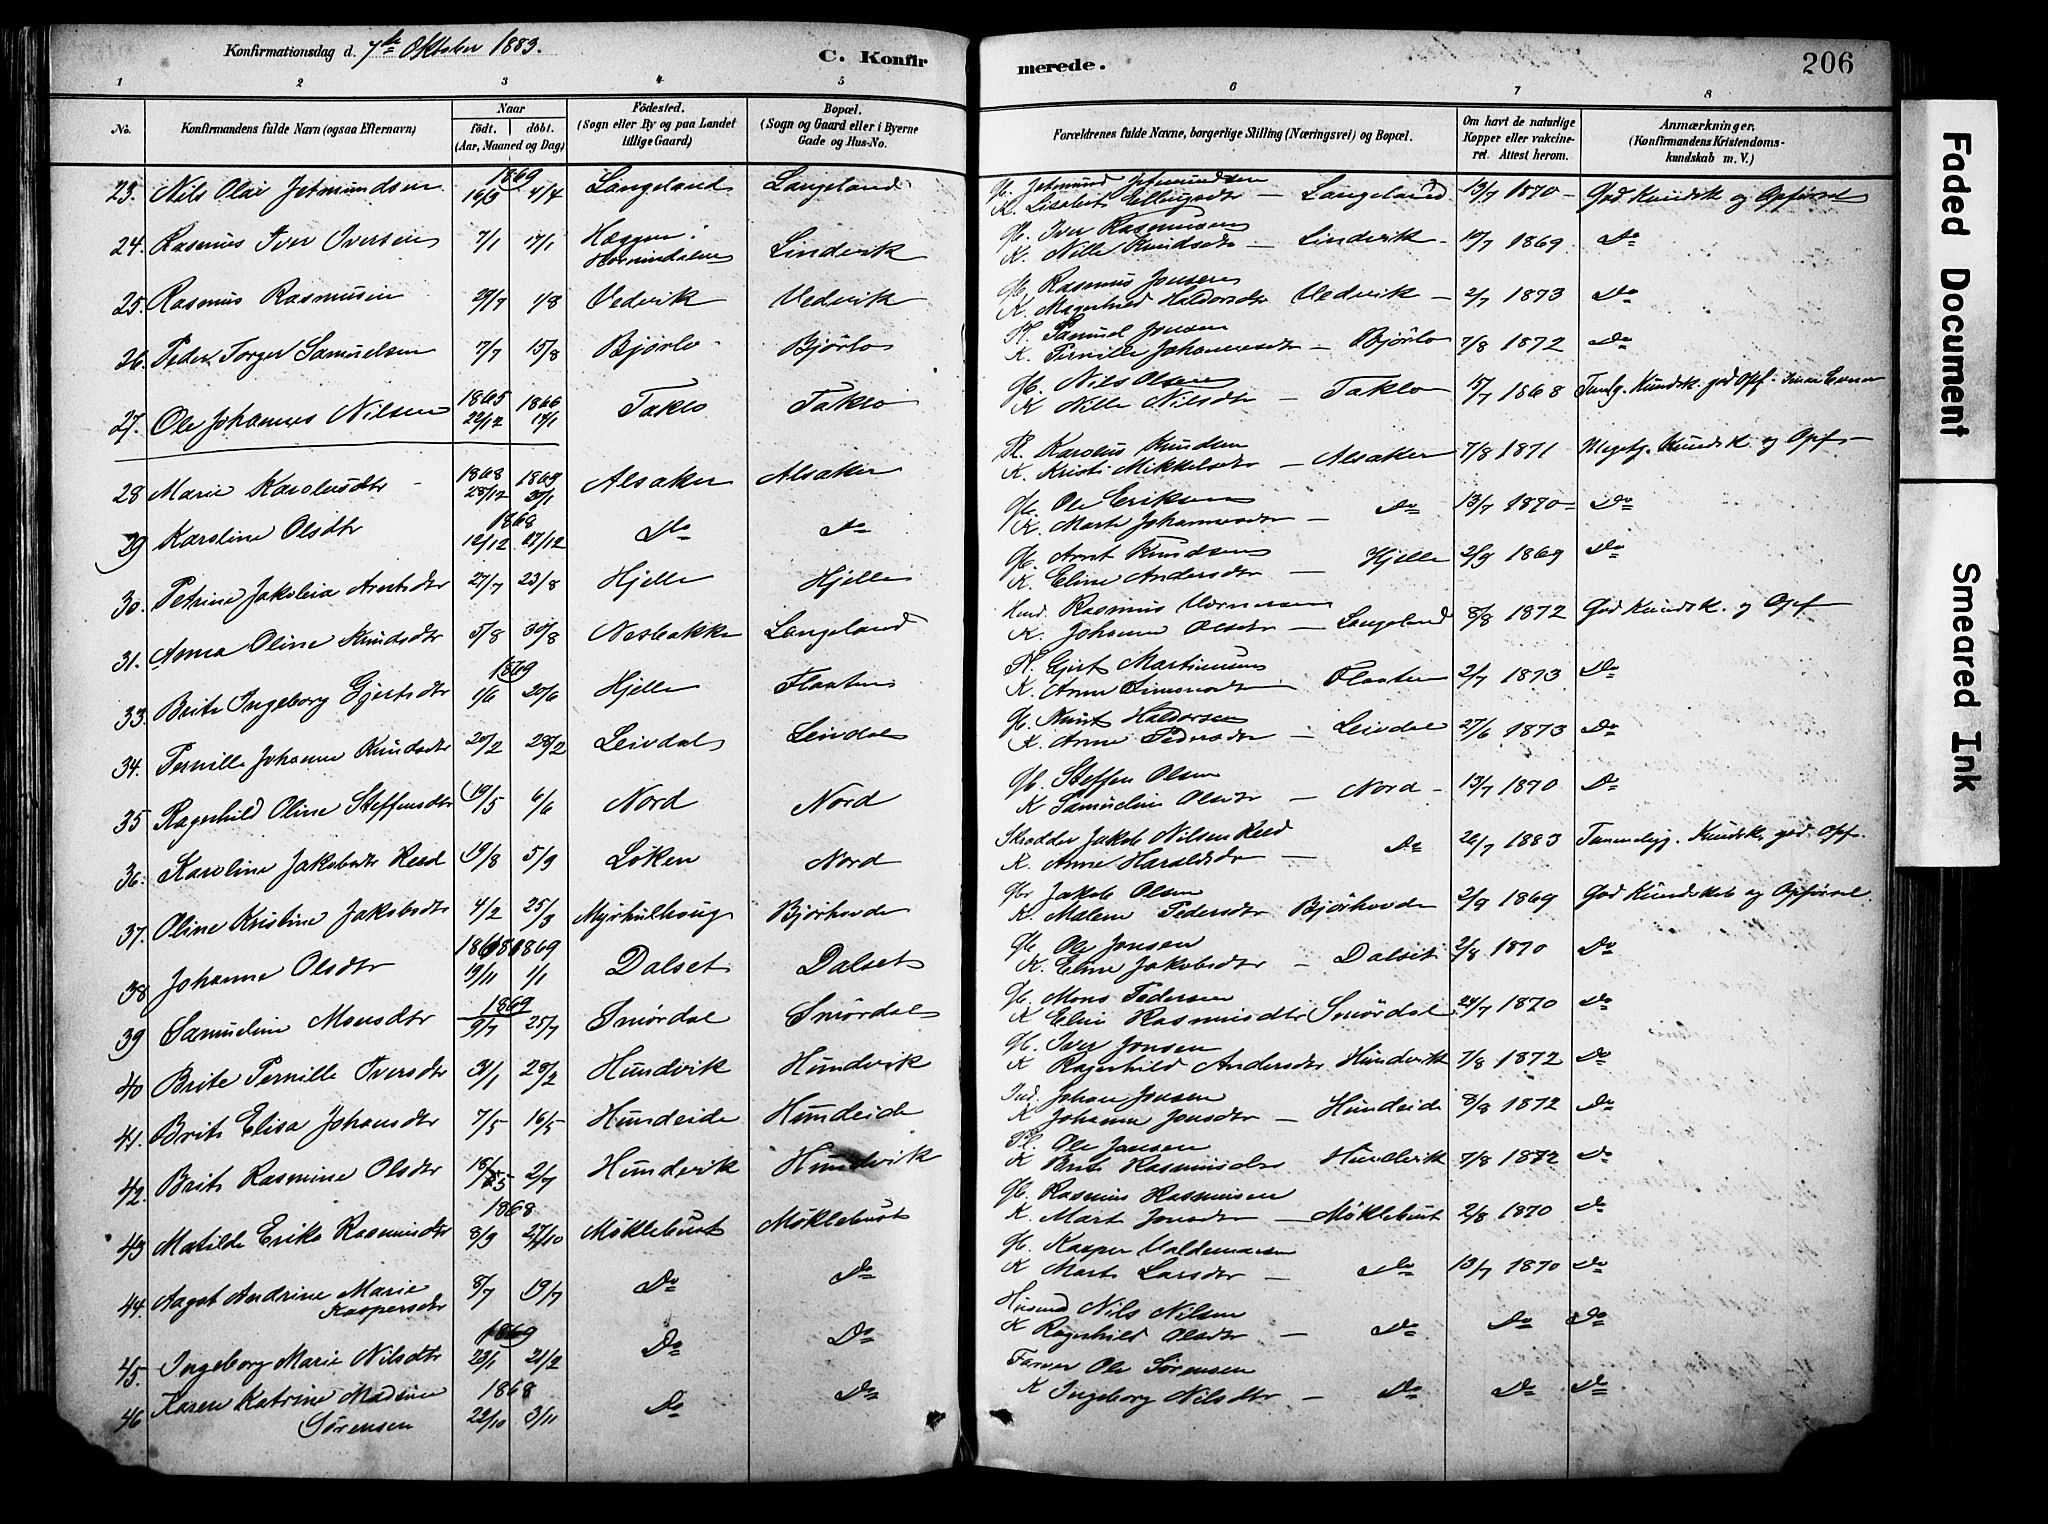 Konfirmationsdag d. 7de Oktober 1883. C. Konfir
merede. 206
1 2 3 4 5 6 7 8
No. Konfirmandens fulde Navn (ogsaa Efternavn) Naar født. døbt. (Aar, Maaned og Dag) Fødested. (Sogn eller By og paa Landet tillige Gaard) Bopæl. (Sogn og Gaard eller i Byerne Gade og Hus-No.
Forældrenes fulde Navne, borgerlige Stilling (Næringsvei) og Bopæl. Om havt de naturlige Kopper eller vakcineret. Attest herom. Anmærkninger. (Konfirmandens Kristendomskundskab m. V.)
23. Nils Olai Jetmundsen 1869 16/3 4/4 Langeland Langeland G. Jetmund Jetmundsen K. Lisabet Ellingsdtr – Langeland 13/7 1870 – God Kundsk og Opførsel
24. Rasmus Iver Iversen 7/1 17/1 Haggen i Hornindalen Lindvik G. Iver Rasmussen K. Nille Knudsdtr – Lindvik 10/7 1869 Do
25. Rasmus Rasmusen 29/7 1/8 Vedvik Vedvik G. Rasmus Jonsen K. Magnhild Haldorsdtr Vedvik – 2/7 1873 Do
26. Peder Torger Samuelsen 7/7 15/8 Bjørlo Bjørlo Pl. Samuel Jonsen K. Pernille Johannesdtr – Bjørlo 7/8 1872 Do
27. Ole Johannes Nilsen 1865 22/12 1866 17/1 Taklo Taklo G. Nils Olsen K Nille Nilsdtr – Taklo 15/7 1868 Taalg. Kundsk. god Opf.
28 Marie Karolusdtr 1868 28/12 1869 30/1 Alsaker Alsaker Pl. Karolus Knudsen K Kristi Mikkelsdtr – Alsaker 7/8 1871 Megetg. Kundsk og Opf –
29 Karoline Olsdtr 1868 12/12 27/12 Do Do G. Ole Eriksen K. Marte Johannesdtr – Do 13/7 1870 – Do
30. Petrine Jakobia Arntsdtr 27/7 23/8 Hjelle Hjelle G. Arnt Knudsen K. Eline Andersdtr – Hjelle 2/9 1869 Do
31. Anna Oline Knudsdtr 5/8 30/8 Nesbakke Langeland Rasmus K. Johanne Olsdtr – Langeland 8/8 1872 God Kundsk. og Opf
33. Brite Ingeborg Gjertsdtr 1869 1/6 20/6 Hjelle Flaaten Pl. Gjert Martinusen K. Anne Simonsdtr Flaaten 2/7 1873 Do
34. Pernille Johanne Knudsdtr 20/2 28/2 Leivdal Leivdal G. Knut Haldorsen K. Anne Pedersdtr – Leivdal 27/6 1873 Do
35 Ragnhild Oline Steffensdtr 19/5 6/6 Nord Nord G. Steffen Olsen K Samueline Olsdtr – Nord – 13/7 1870 Do
36. Karoline Jakobsdtr Reed 19/8 5/9 Løken Nord Skrædder Jakob Nilsen Reed K. Anne Haraldsdtr – Do 26/7 1883 Temmelig. Kundsk. god. Opf.
37. Oline Kristine Jakobsdtr 4/2 25/3 Myrhulhaug Bjørhovde Gbr Jakob Olsen K. Malene Pedersdtr Bjørhovde 2/9 1869 God Kundskab og Opførsel
38 Johanne Olsdtr 1868 19/11 1869 1/1 Dalset Dalset G. Ole Jonsen K. Eline Jakobsdtr – Dalset 2/8 1870 Do
39 Samueline Monsdtr 1869 9/7 25/7 Smørdal Smørdal G. Mons Pedersen K Eline Rasmusdtr Smørdal 24/7 1870 Do
40 Brite Pernille Iversdtr 31/1 28/2 Hundvik Hundvik G. Iver Jonsen K Ragnhild Andersdtr Hundvik 7/8 1872 Do
41. Brite Elisa Johansdtr 7/5 16/5 Hundeide Hundeide Ind. Johan Jonsen K Johanne Jonsdtr – Hundeide 8/8 1872 Do
42. Brite Rasmine Olsdtr 18/5 2/7 Hundvik Hundvik Pl. Ole Jansen K Brite Rasmusdtr Hundvik 7/8 1872 Do
43 Matilde Erika Rasmusdtr 1868 8/9 27/10 Møklebust Møklebust G. Rasmus Rasmusen K. Marte Jonsdtr – Møklebust 2/8 1870 Do
44 Aagot Andrine Marie Kaspersdtr 8/7 19/7 Do Do G. Kasper Valdemarsen K Marte Larsdtr – Do 13/7 1870 Do
45. Ingeborg Marie Nilsdtr 1869 23/1 21/2 Do Do Husmd Nils Nilsen K Ragnhild Olsdtr – Do Do Do
46 Karen Katrine Madsine Sørensen 1868 22/10 3/11 Do Do Farver Ole Sørensen K Ingeborg Nilsdtr – Do Do Do
Faded Document
Smeared Ink